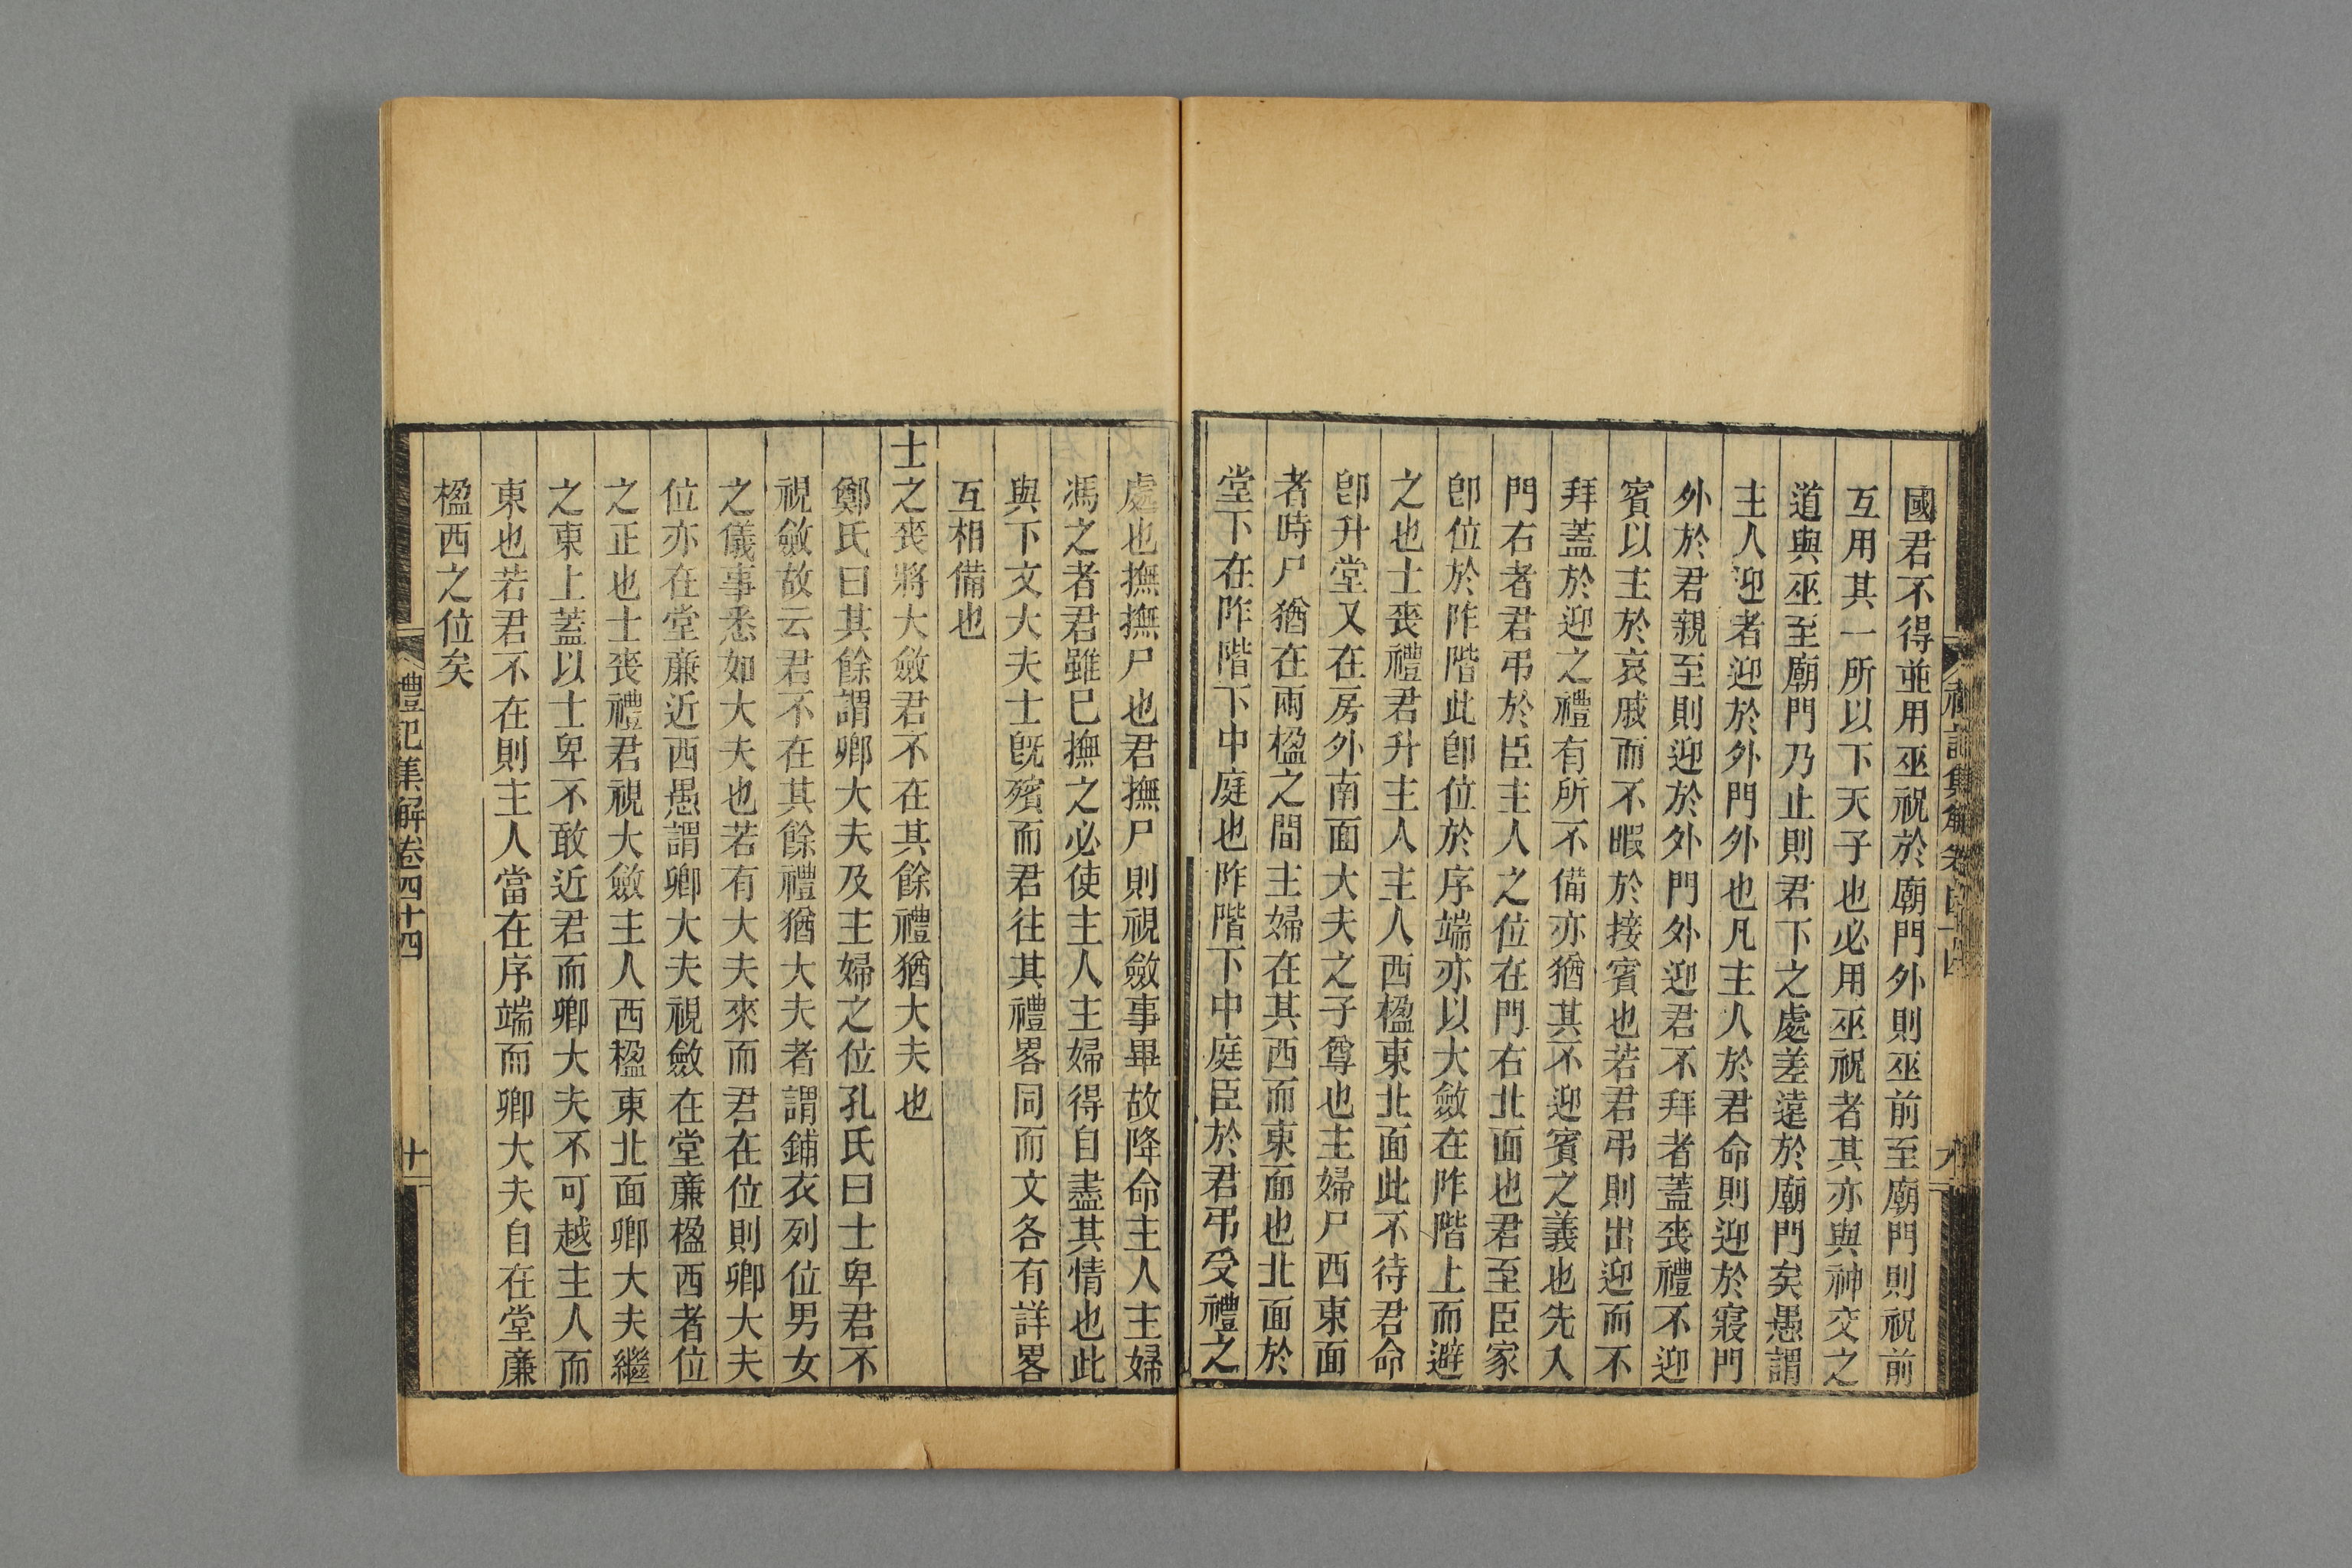 國君不得並用巫祝於廟門外則巫前至廟門則祝前
互用其一所以下天子也必用巫祝者其亦與神交之
道與巫至廟門乃止則君下之處差遠於廟門矣愚謂
主人迎者迎於外門外也凡主人於君命則迎於寢門
外於君親至則迎於外門外迎君不拜者蓋喪禮不迎
賓以主於哀戚而不暇於接賓也若君弔則出迎而不
拜蓋於迎之禮有所不備亦猶其不迎賓之義也先入
門右者君弔於臣主人之位在門右北面也君至臣家
卽位於阼階此卽位於序端亦以大斂在阼階上而避
之也士喪禮君升主人主人西楹東北面此不待君命
卽升堂又在房外南面大夫之子尊也主婦尸西東面
者時尸猶在兩楹之間主婦在其西而東面也北面於
堂下在阼階下中庭也阼階下中庭臣於君弔受禮之
處也撫撫尸也君撫尸則視斂事畢故降命主人主婦
馮之者君雖已撫之必使主人主婦得自盡其情也此
與下文大夫士旣殯而君往其禮畧同而文各有詳畧
互相備也
士之喪將大斂君不在其餘禮猶大夫也
鄭氏曰其餘謂卿大夫及主婦之位孔氏曰士卑君不
視斂故云君不在其餘禮猶大夫者謂鋪衣列位男女
之儀事悉如大夫也若有大夫來而君在位則卿大夫
位亦在堂廉近西愚謂卿大夫視斂在堂廉楹西者位
之正也士喪禮君視大斂主人西楹東北面卿大夫繼
之東上蓋以士卑不敢近君而卿大夫不可越主人而
東也若君不在則主人當在序端而卿大夫自在堂廉
楹西之位矣
禮記集解卷四十四
十